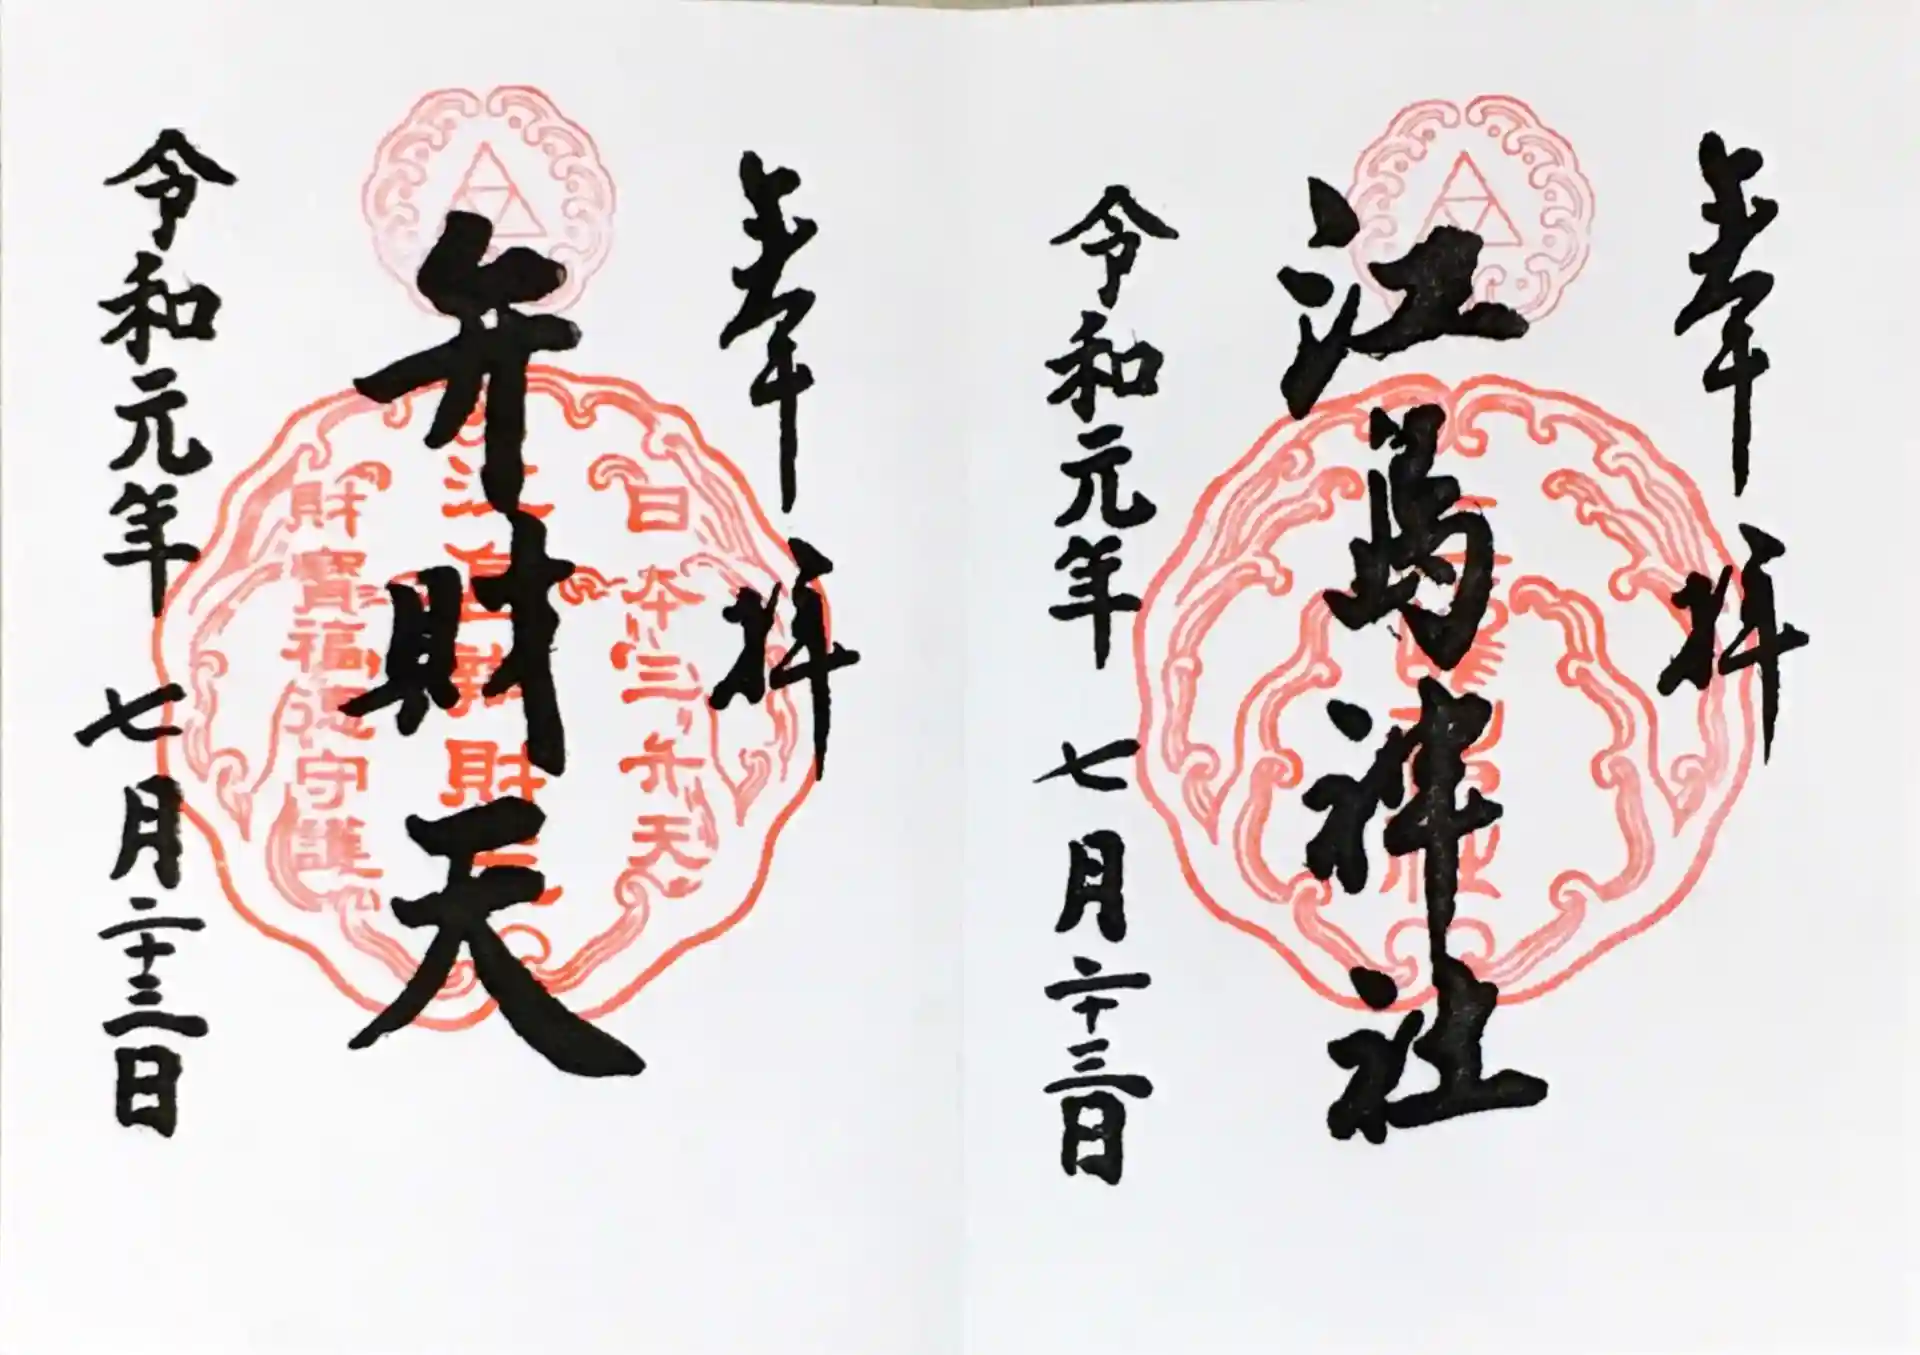 奉拝
江島神社
令和元年七月二十三日
奉拝
弁財天
令和元年七月二十三日
日本三弁天
財寶福徳守護